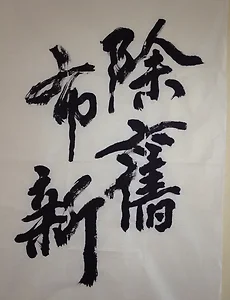 除舊
布新